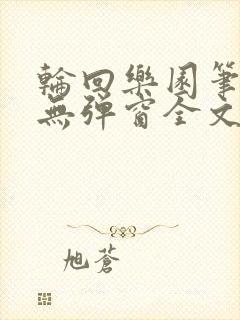 輪回樂園筆
無彈窗全文
旭蒼